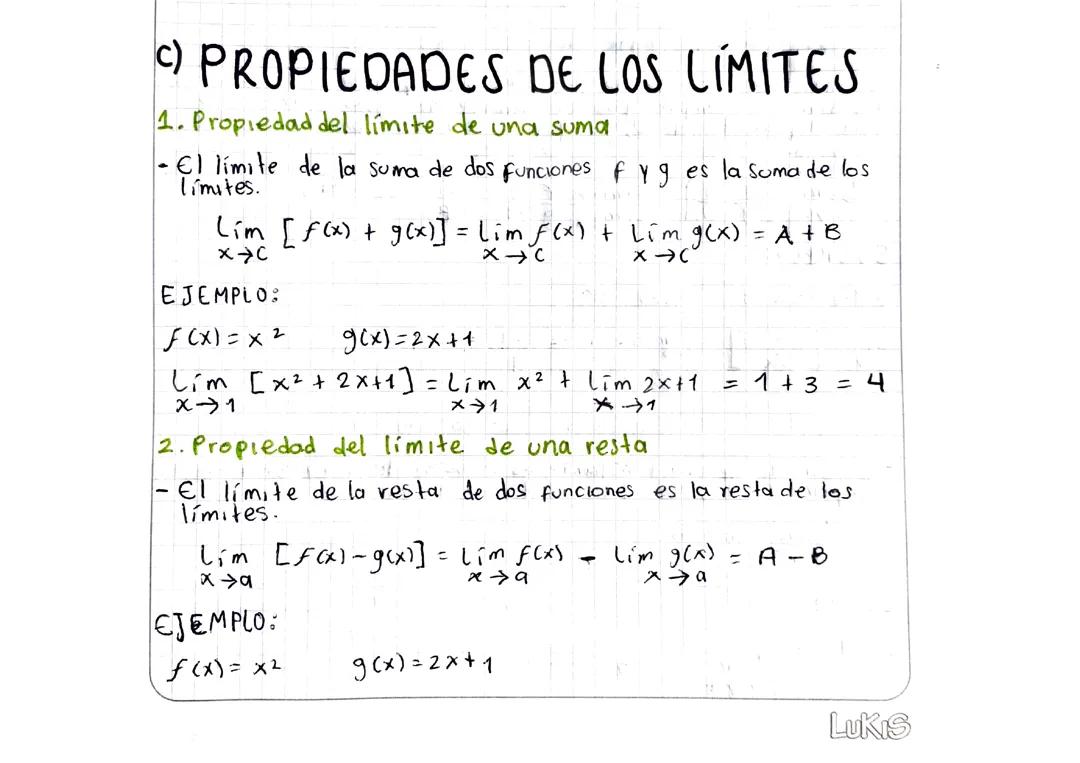 c) PROPIEDADES DE LOS LÍMITES
1. Propiedad del límite de una suma
- El límite de la suma de dos funciones f y g es la suma de los
límites.
Lím [f(x) + g(x)] = Lím f(x) + Lím g(x) = A + B
x→c x→c x→c
EJEMPLO:
f(x) = x² g(x) = 2x+1
Lím [x² + 2x+1] = Lím x² + Lím 2x+1 = 1 + 3 = 4
x→1 x→1 x→1
2. Propiedad del límite de una resta
- El límite de la resta de dos funciones es la resta de los
límites.
Lím [f(x) - g(x)] = Lím f(x) - Lím g(x) = A - B
x→a x→a x→a
EJEMPLO:
f(x) = x² g(x) = 2x+1
LUKIS